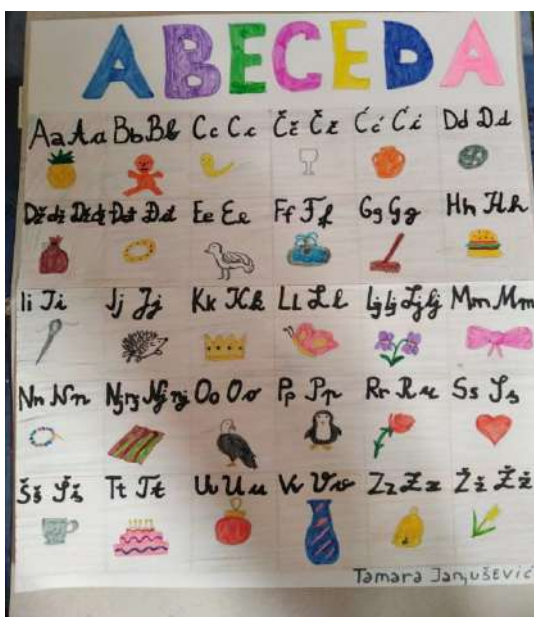 ABECEDA
Aa Aa Bb Bb Cc Cc Čč Čč Ćć Ćć Dd Dd
Dždž Dždž Đđ Đđ Ee Ee Ff Ff Gg Gg Hh Hh
Ii Ii Jj Jj Kk Kk Ll Ll Ljlj Ljlj Mm Mm
Nn Nn Njnj Njnj Oo Oo Pp Pp Rr Rr Ss Ss
Šš Šš Tt Tt Uu Uu Vv Vv Zz Zz Žž Žž
Tamara Janjušević